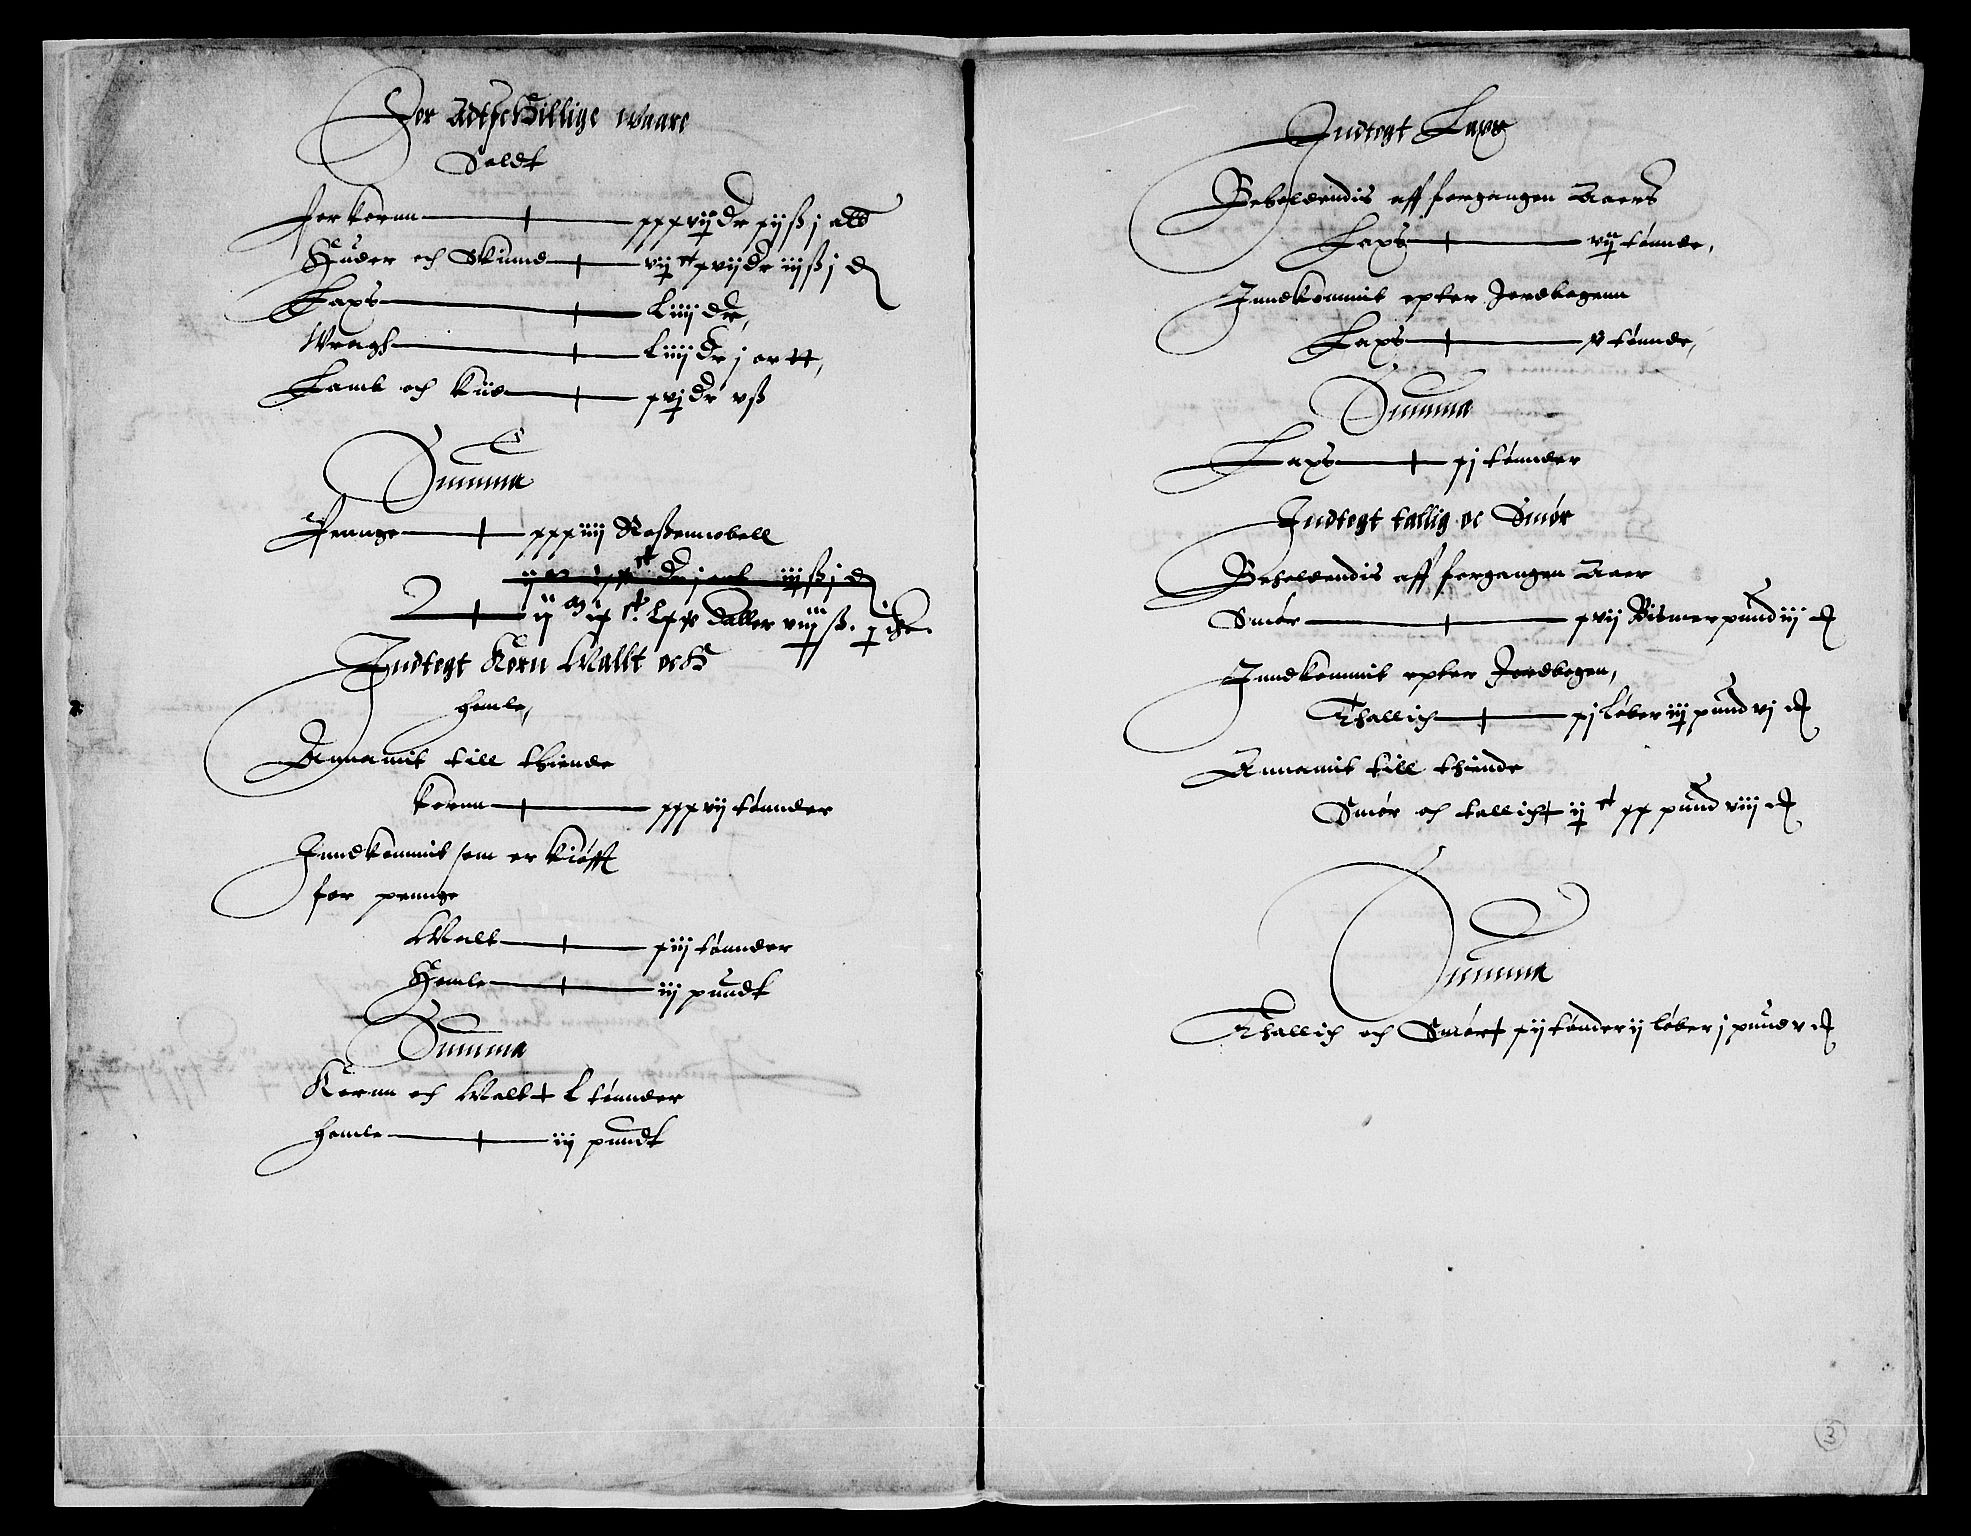 For Adtschillige waare
Soldt
For kornn xxxvij dr xij ß j alb
Huder och Skinnd vijᶜ xvij dr iij ß j ₰
Laxs Liiij dr,
Wragh Liiij dr j ortt,
Lamb och kiid xvj dr v ß
Summa
Pennge xxxiiij Roßennobell
ij ß j ₰
Lxx daller viij ß.
Indtegt Korn Malltt och
homle,
Annamit till thiende
kornn xxxvij tønnder
Inndkommit som er kiøfft
for pennge
Malt xiij tønnder
Homle iij pundt
Summa
Kornn och Malt L tønnder
homle iij pundt
Indtegt Laxs
Beholdendis aff forgangen Aars
Laxs vij tønnde,
Inndkommit epter Jordbogenn
Laxs v tønnde,
Summa
Laxs xj tønnder
Indtegt tallig oc Smør
Beholdendis aff forgangen Aaer
Smør xvij Bismerpund iij ₰
Inndkommit epter Jordbogen,
Thallich xj løber iij pund vj ₰
Annamit till thiende
Smør och tallich ijᶜ xx pund viij ₰
Summa
Thallich och Smør xij tønder ij løber j pund v ₰
3